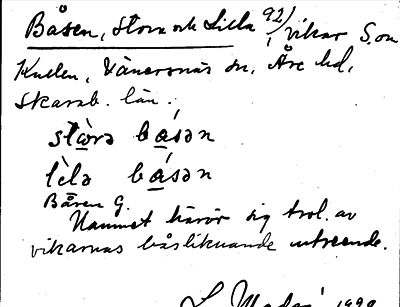 Båsen, Stora och Lilla 92/, vikar S. om
Kullen, Vänersnäs sn, Åse hd,
Skarab. län.
stὰrə básən
lὲlə básən
Båsen G.
Namnet härör sig trol. av
vikarnas båsliknande utseende.